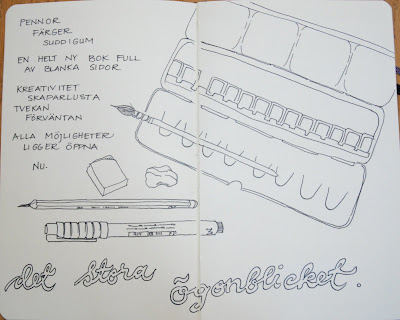 PENNOR
FÄRGER
SUDDIGUM
EN HELT NY BOK FULL
AV BLANKA SIDOR
KREATIVITET
SKAPARLUSTA
TVEKAN
FÖRVÄNTAN
ALLA MÖJLIGHETER
LIGGER ÖPPNA
NU.
det stora ögonblicket.